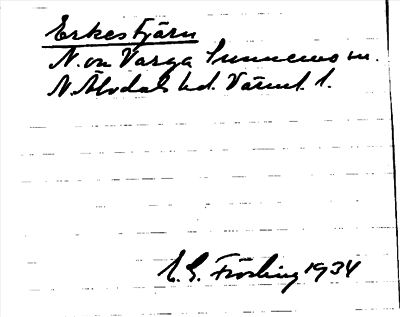 Erkestjärn
N. om Varga Sunnemo sn.
N. Älvdals hd. Värml. l.
E. G. Frösling 1934